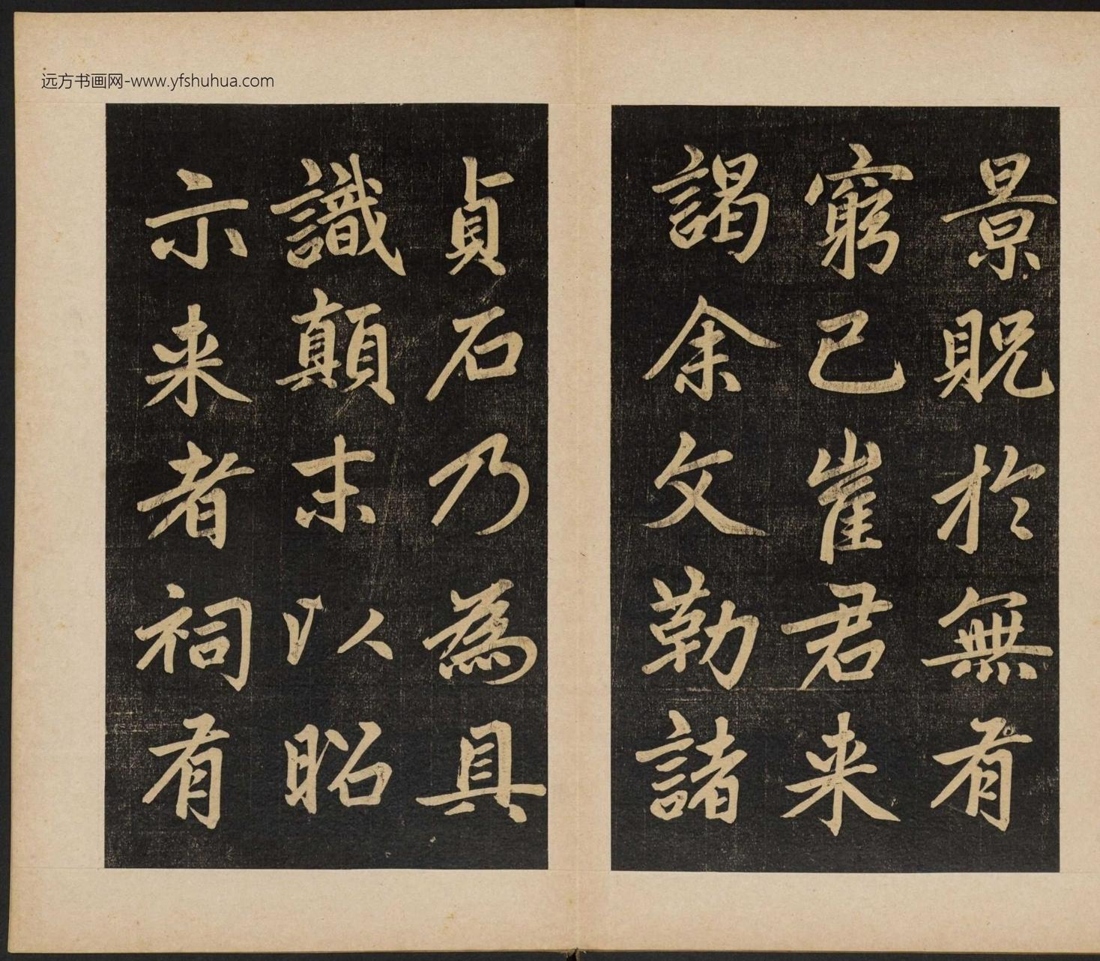 远方书画网-www.yfshuhua.com
景貺於無有
窮已崔君来
謁余文勒諸
貞石乃為具
識顛末以昭
示来者祠有